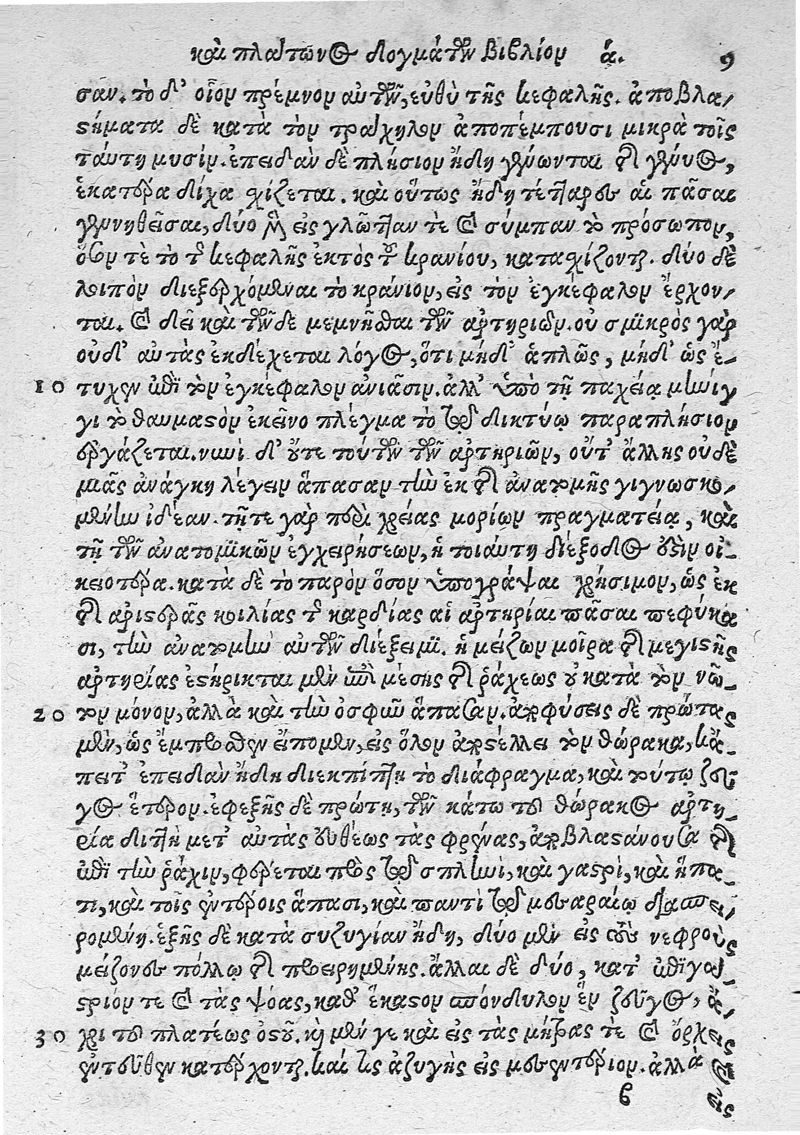 καὶ πλάτωνος δογμάτων βιβλίον ά. 9
σαν. τὸ δ᾽ οἷον πρέμνον αὐτῶν, εὐθὺ τῆς κεφαλῆς. ἀποβλα-
στήματα δὲ κατὰ τὸν τράχηλον ἀποπέμπουσι μικρὰ τοῖς
ταύτῃ μυσίν. ἐπειδὰν δὲ πλήσιον ἤδη γένωνται τῆς γένυος,
ἑκατέρα δίχα σχίζεται. καὶ οὕτως ἤδη τέτταρες αἱ πᾶσαι
γεννηθεῖσαι, δύο μὲν εἰς γλῶτταν τε καὶ σύμπαν τὸ πρόσωπον,
ὅσον τὲ τὸ τῆς κεφαλῆς ἐκτὸς τοῦ κρανίου, κατασχίζονται. δύο δὲ
λοιπὸν διεξερχόμεναι τὸ κράνιον, εἰς τὸν ἐγκέφαλον ἔρχον-
ται. καὶ δεῖ καὶ τῶνδε μεμνῆσθαι τῶν ἀρτηριῶν. οὐ σμικρὸς γὰρ
οὐδ᾽ αὐτὰς ἐκδέχεται λόγος, ὅτι μηδ᾽ ἁπλῶς, μηδ᾽ ὡς ἔ-
10 τυχεν ἐπὶ τὸν ἐγκέφαλον ἀνιᾶσιν. ἀλλ᾽ ὑπὸ τῇ παχείᾳ μήνιγ
γι τὸ θαυμαστὸν ἐκεῖνο πλέγμα τὸ τῷ δικτύῳ παραπλήσιον
ἐργάζεται. νυνὶ δ᾽ οὔτε τούτων τῶν ἀρτηριῶν, οὔτ᾽ ἄλλης οὐδὲ
μιᾶς ἀνάγκη λέγειν ἅπασαν τὴν ἐκ τῆς ἀνατομῆς γιγνωσκο-
μένην ἰδέαν. τῇ τε γὰρ περὶ χρείας μορίων πραγματείᾳ, καὶ
τῇ τῶν ἀνατομικῶν ἐγχειρήσεων, ἡ τοιαύτη διέξοδος ἐστὶν οἰ-
κειοτέρα. κατὰ δὲ τὸ παρὸν ὅσον ὑπογράψαι χρήσιμον, ὡς ἐκ
τῆς ἀριστερᾶς κοιλίας τῆς καρδίας αἱ ἀρτηρίαι πᾶσαι πεφύκα
σι, τὴν ἀνατομὴν αὐτῶν διέξειμι. ἡ μείζων μοῖρα τῆς μεγίστης
ἀρτηρίας ἐστήρικται μὲν ἐπὶ μέσης τῆς ῥάχεως οὐ κατὰ τὸν νῶ-
20 τον μόνον, ἀλλὰ καὶ τὴν ὀσφῦν ἅπασαν. ἀποφύσεις δὲ πρώτας
μὲν, ὡς ἔμπροσθεν εἴπομεν, εἰς ὅλον ἀποστέλλει τὸν θώρακα, κἄ-
πειτ᾽ ἐπειδὰν ἤδη διεκπίπτῃ τὸ διάφραγμα, καὶ τούτῳ ζεῦ-
γος ἕτερον. ἐφεξῆς δὲ πρώτη, τῶν κάτω τοῦ θώρακος ἀρτη-
ρία διττὴ μετ᾽ αὐτὰς εὐθέως τὰς φρένας, ἀποβλαστάνουσα τῆς
ἐπὶ τὴν ῥάχιν, φέρεται πρὸς τῷ σπληνὶ, καὶ γαστρὶ, καὶ ἥπα-
τι, καὶ τοῖς ἐντέροις ἅπασι, καὶ παντὶ τῷ μεσαραίῳ διασπει-
ρομένη. ἑξῆς δὲ κατὰ συζυγίαν ἤδη, δύο μὲν εἰς τοὺς νεφροὺς
μείζονες πόλλῳ τῆς προειρημένης. ἄλλαι δὲ δύο, κατ᾽ ἐπιγά-
στριόν τε καὶ τὰς ψόας, καθ᾽ ἕκαστον σπόνδυλον ἓν ζεῦγος, ἄ-
30 χρι τοῦ πλατέως ὀστοῦ. καὶ μέν γε καὶ εἰς τὰς μήτρας τὲ καὶ ὄρχεις
ἐντεῦθεν κατέρχονται. καί τις ἀζυγὴς εἰς μεσεντέριον. ἀλλὰ
β